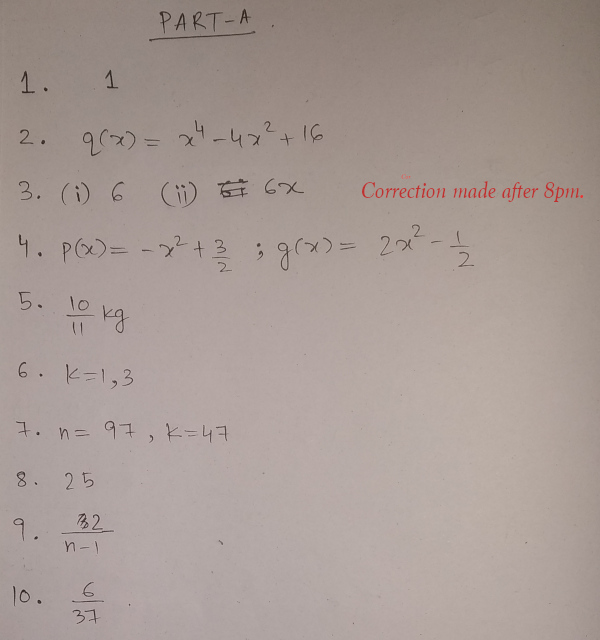 PART-A.
1. 1
2. q(x) = x⁴ - 4x² + 16
3. (i) 6 (ii) 6x Correction made after 8pm.
4. p(x) = -x² + 3/2 ; g(x) = 2x² - 1/2
5. 10/11 kg
6. k=1,3
7. n= 97, k=47
8. 25
9. 32/n-1
10. 6/37.